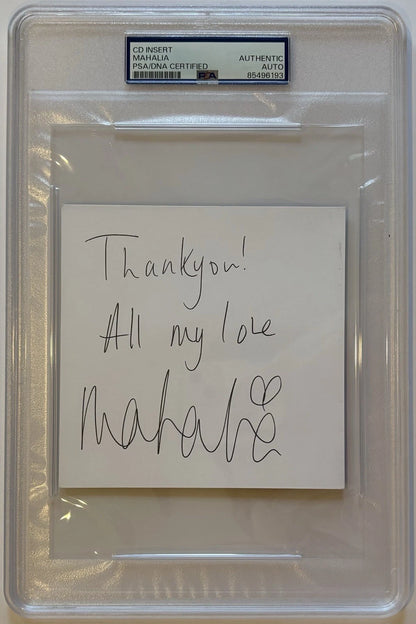 CD INSERT
MAHALIA
PSA/DNA CERTIFIED
AUTHENTIC
AUTO
85496193
PSA
Thankyou!
All my love
Mahalia